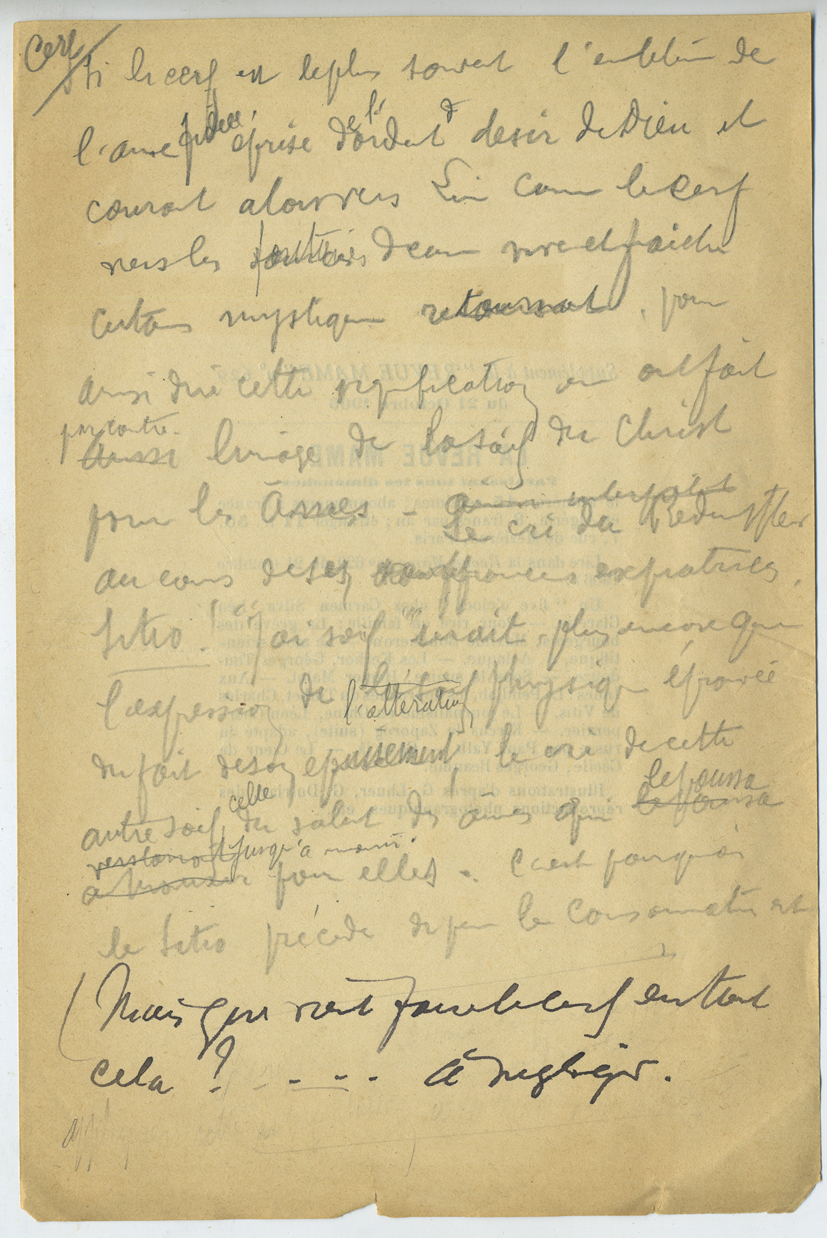 Cerf
Si le cerf est le plus souvent l'emblème de
l'ame éprise de l'ardent desir de Dieu et
courant alors vers Lui comme le cerf
vers les fontaines d'eau vive et fraiche
certains mystiques retournant, pour
ainsi dire cette signification en ont fait
par contre
aussi l'image de la soif du Christ
pour les Âmes - 
Le cri du Rédempteur
au cours de ses souffrances expiatrices,
Sitio! "J'ai soif" serait, plus encore que
l'expression de la soif physique éprouvée
l'altération
du fait de son épuisement le cri de cette
autre soif, celle du salut des âmes qui le poussa
jusqu'à mourir
pour elles. C'est pourquoi
le Sitio précède de peu le Consommatum est
Mais que vient faire le cerf en tout
cela ? - - - - À négliger.